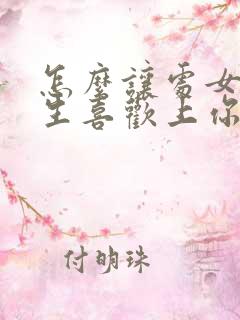 怎麼讓處女
生喜歡上你
付明珠